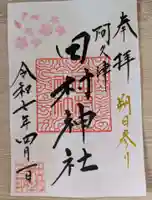 奉拝
朔日参り
阿久津
田村神社
令和七年四月一日